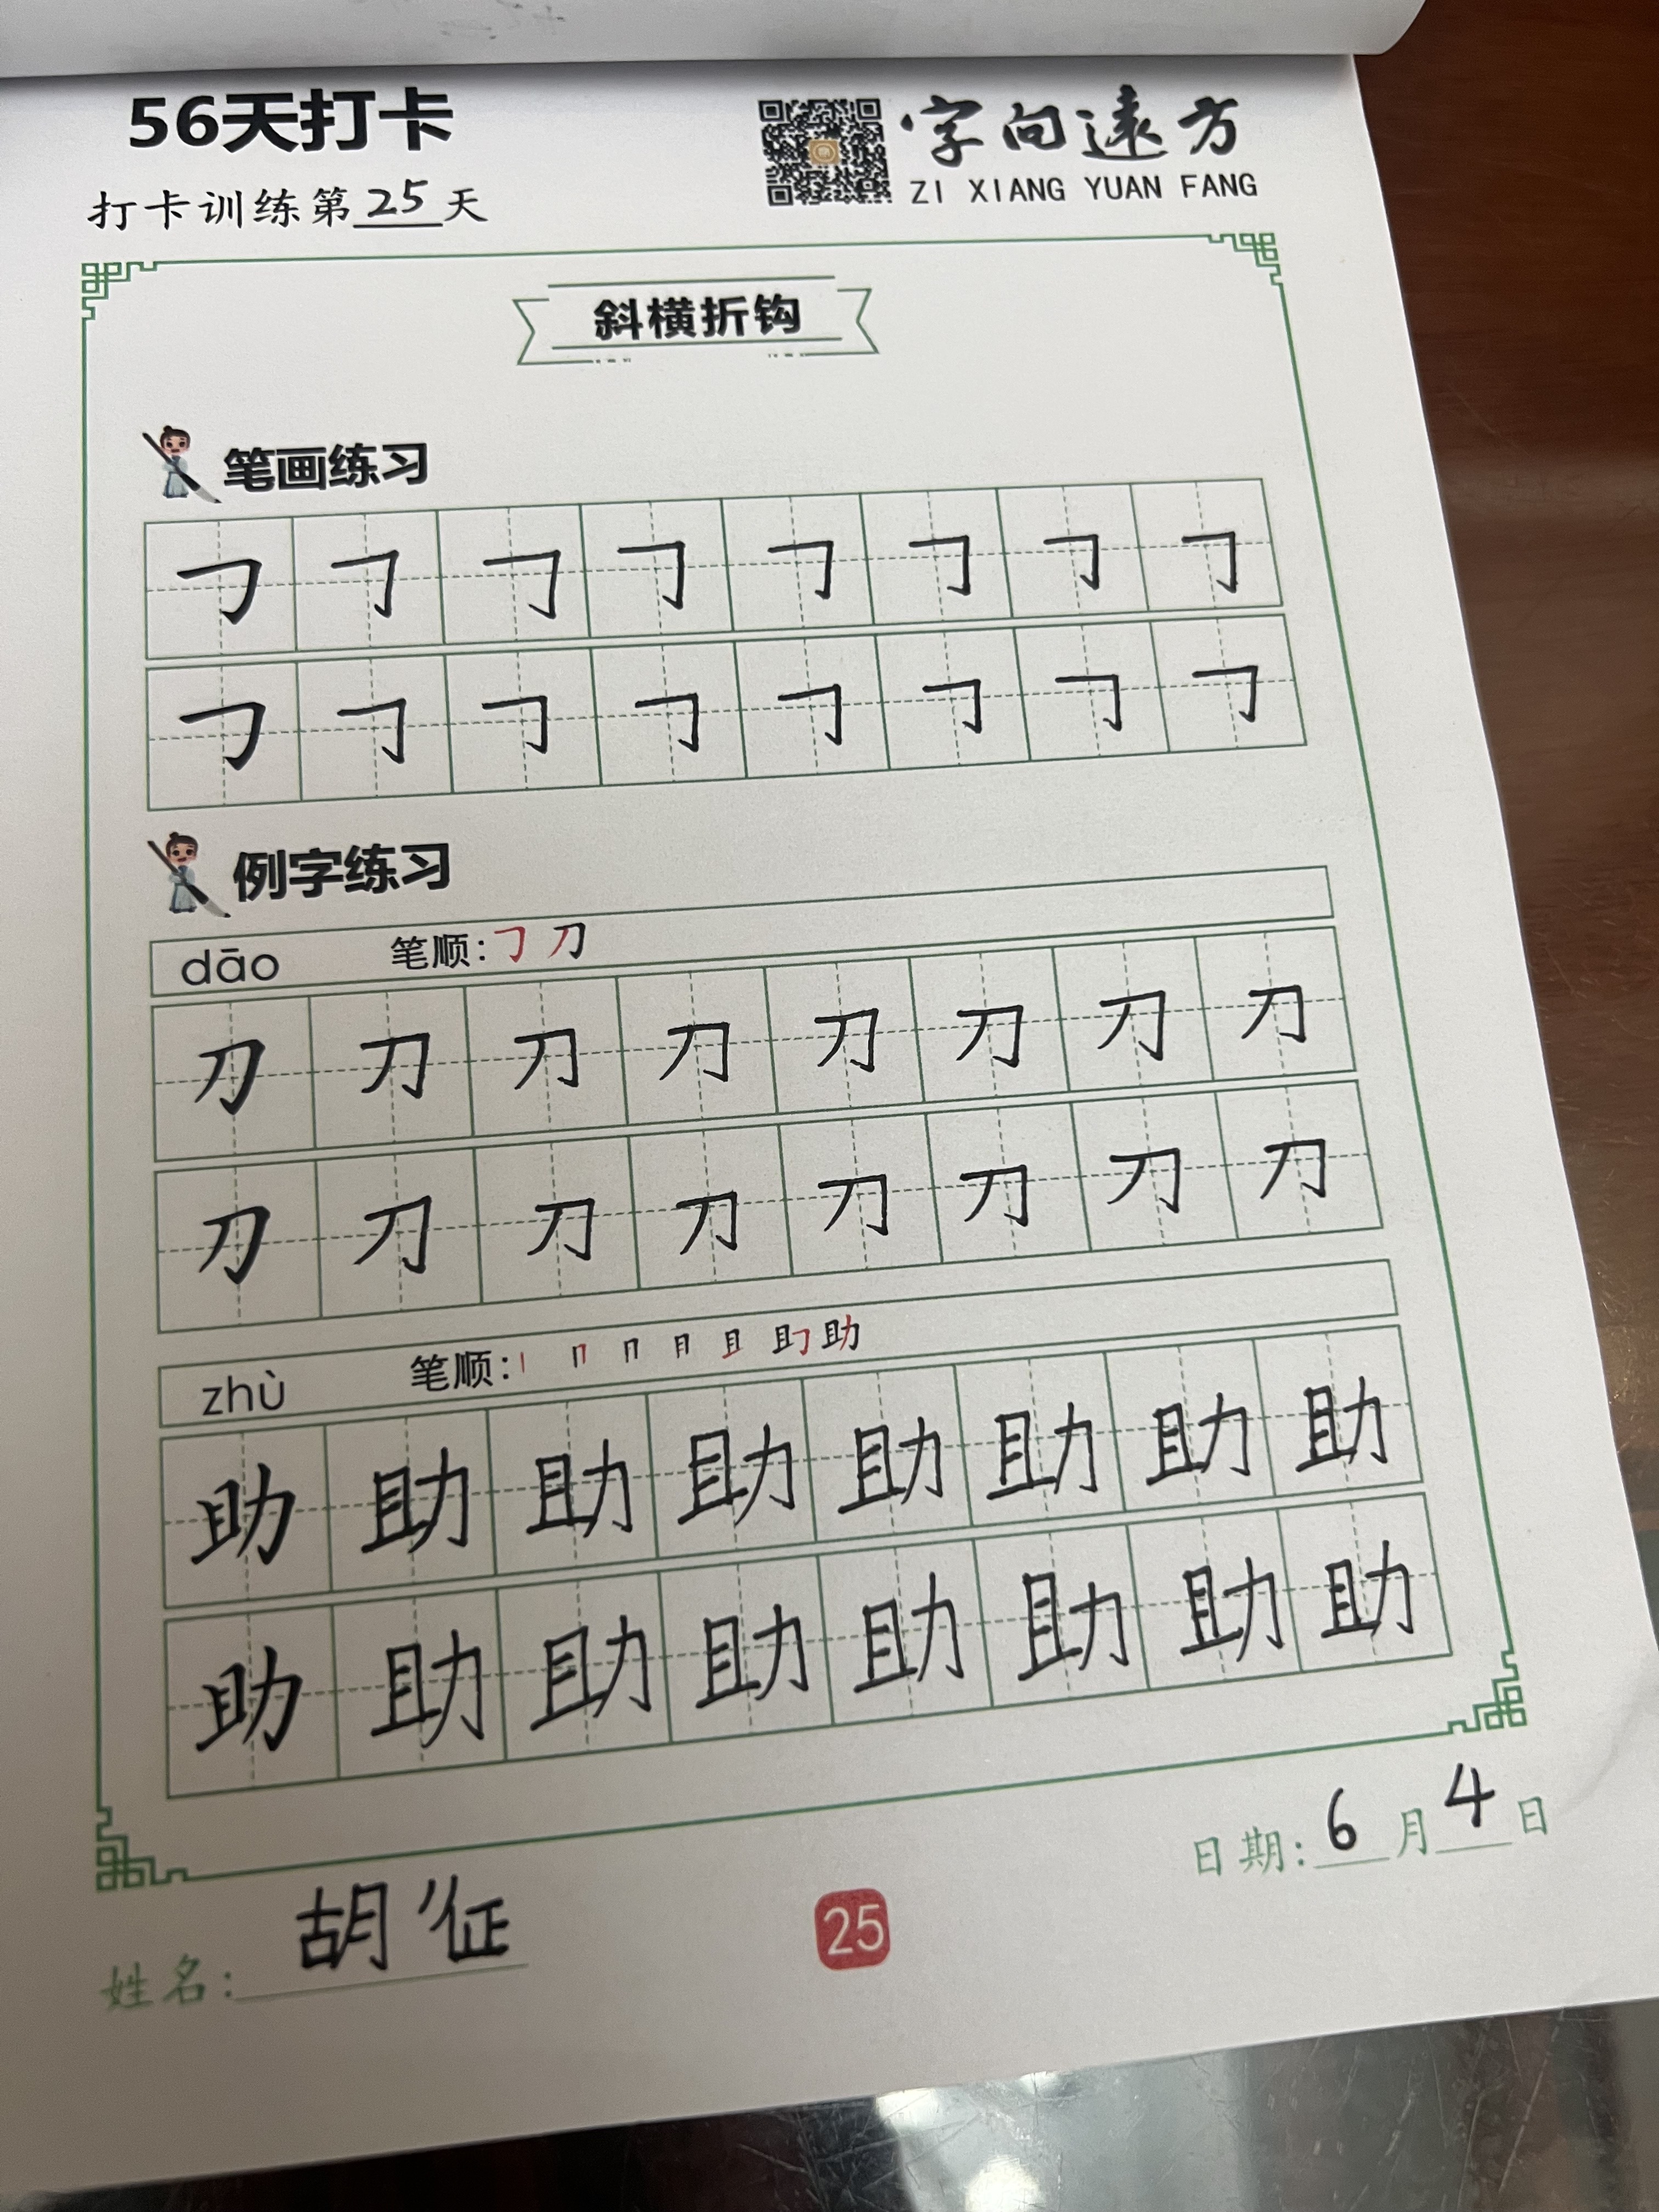 56天打卡
字向远方
ZI XIANG YUAN FANG
打卡训练第25天
斜横折钩
笔画练习
𠃌 𠃌 𠃌 𠃌 𠃌 𠃌 𠃌 𠃌
𠃌 𠃌 𠃌 𠃌 𠃌 𠃌 𠃌 𠃌
例字练习
dāo 笔顺: 𠃌 刀
刀 刀 刀 刀 刀 刀 刀 刀
刀 刀 刀 刀 刀 刀 刀 刀
zhù 笔顺: 助
助 助 助 助 助 助 助 助
助 助 助 助 助 助 助 助
日期: 6月4日
姓名: 胡
25